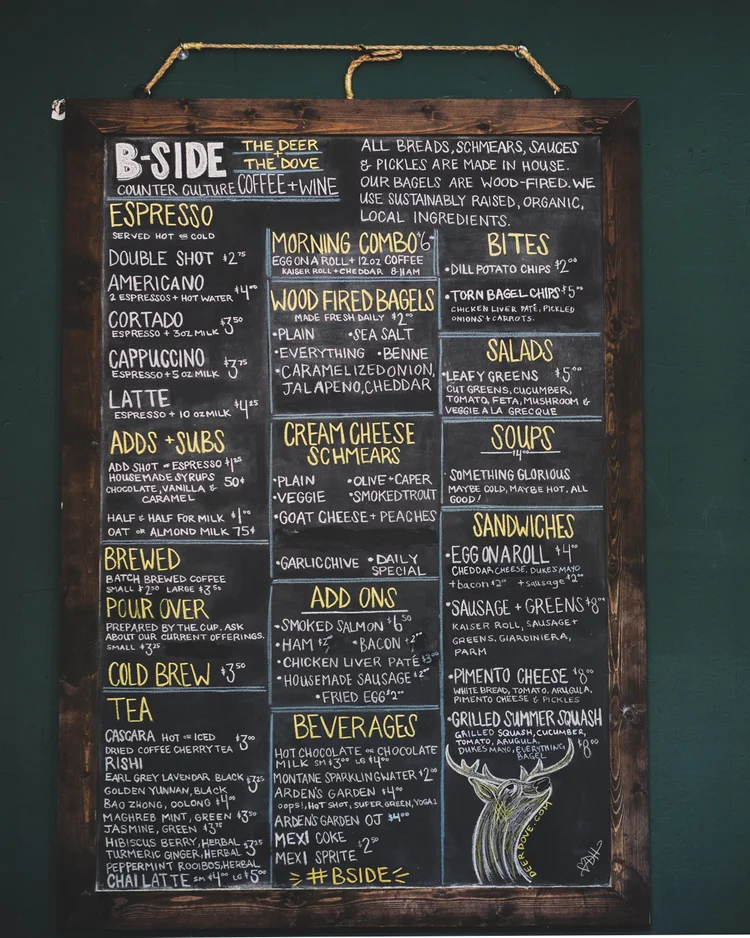 B-SIDE
THE DEER
+
THE DOVE
COUNTER CULTURE COFFEE + WINE
ALL BREADS, SCHMEARS, SAUCES
& PICKLES ARE MADE IN HOUSE.
OUR BAGELS ARE WOOD-FIRED. WE
USE SUSTAINABLY RAISED, ORGANIC,
LOCAL INGREDIENTS.
ESPRESSO
SERVED HOT OR COLD
DOUBLE SHOT $2.75
AMERICANO $4.00
2 ESPRESSOS + HOT WATER
CORTADO $3.50
ESPRESSO + 3OZ MILK
CAPPUCCINO $3.75
ESPRESSO + 5 OZ MILK
LATTE $4.25
ESPRESSO + 10 OZ MILK
ADDS + SUBS
ADD SHOT OF ESPRESSO $1.25
HOUSEMADE SYRUPS 50¢
CHOCOLATE, VANILLA &
CARAMEL
HALF & HALF FOR MILK $1.00
OAT OR ALMOND MILK 75¢
BREWED
BATCH BREWED COFFEE
SMALL $2.50 LARGE $3.50
POUR OVER
PREPARED BY THE CUP. ASK
ABOUT OUR CURRENT OFFERINGS.
SMALL $3.25
COLD BREW $3.50
TEA
CASCARA HOT OR ICED $3.00
DRIED COFFEE CHERRY TEA
RISHI
EARL GREY LAVENDAR BLACK $3.25
GOLDEN YUNNAN, BLACK
BAO ZHONG, OOLONG $4.00
MAGHREB MINT, GREEN $3.50
JASMINE, GREEN $3.75
HIBISCUS BERRY, HERBAL $3.25
TURMERIC GINGER, HERBAL
PEPPERMINT ROOIBOS, HERBAL
CHAI LATTE SM $4.00 LG $5.00
MORNING COMBO $6
EGG ON A ROLL + 12OZ COFFEE
KAISER ROLL + CHEDDAR 8-11AM
WOOD FIRED BAGELS
MADE FRESH DAILY $2.00
•PLAIN •SEA SALT
•EVERYTHING •BENNE
•CARAMELIZED ONION,
JALAPENO, CHEDDAR
CREAM CHEESE
SCHMEARS
•PLAIN •OLIVE + CAPER
•VEGGIE •SMOKED TROUT
•GOAT CHEESE + PEACHES
•GARLIC CHIVE •DAILY
SPECIAL
ADD ONS
•SMOKED SALMON $6.50
•HAM $2.00 •BACON $2.00
•CHICKEN LIVER PATE $3.00
•HOUSEMADE SAUSAGE $2.00
•FRIED EGG $2.00
BEVERAGES
HOT CHOCOLATE OR CHOCOLATE
MILK SM $3.00 LG $4.00
MONTANE SPARKLING WATER $2.00
ARDEN'S GARDEN $4.00
OOPS!, HOT SHOT, SUPER GREEN, YOGA1
ARDEN'S GARDEN OJ $4.00
MEXI COKE $2.50
MEXI SPRITE
#BSIDE
BITES
•DILL POTATO CHIPS $2.00
•TORN BAGEL CHIPS $5.00
CHICKEN LIVER PATE, PICKLED
ONIONS + CARROTS.
SALADS
•LEAFY GREENS $5.00
CUT GREENS, CUCUMBER,
TOMATO, FETA, MUSHROOM &
VEGGIE A LA GRECQUE
SOUPS
$4.00
SOMETHING GLORIOUS
MAYBE COLD, MAYBE HOT, ALL
GOOD!
SANDWICHES
•EGG ON A ROLL $4.00
CHEDDAR CHEESE, DUKE'S MAYO
+bacon $2.00 +sausage $2.00
•SAUSAGE + GREENS $8.00
KAISER ROLL, SAUSAGE +
GREENS, GIARDINIERA,
PARM
•PIMENTO CHEESE $8.00
WHITE BREAD, TOMATO, ARUGULA,
PIMENTO CHEESE & PICKLES
•GRILLED SUMMER SQUASH
GRILLED SQUASH, CUCUMBER,
TOMATO, ARUGULA,
DUKES MAYO, EVERYTHING
BAGEL $8.00
DEERDOVE.COM